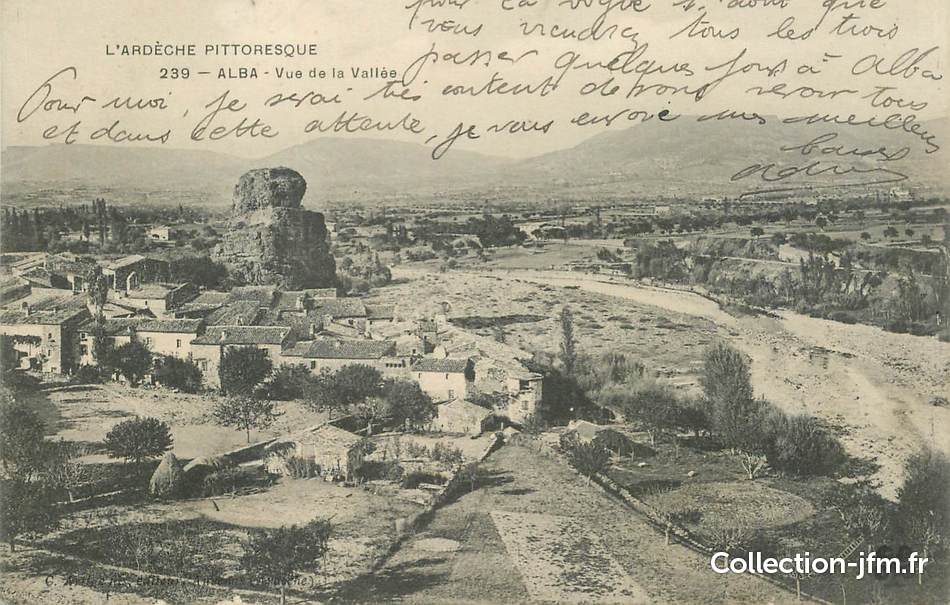 pour la vogue
dont que
vous viendrez tous les trois
L'ARDÈCHE PITTORESQUE
passer quelques jours à Alba
239 — ALBA - Vue de la Vallée
Pour moi, je serai très content de vous revoir tous
et dans cette attente, je vous envoie mes meilleurs
baisers
C. Artige, éditeur, Aubenas (Ardèche)
Collection-jfm.fr